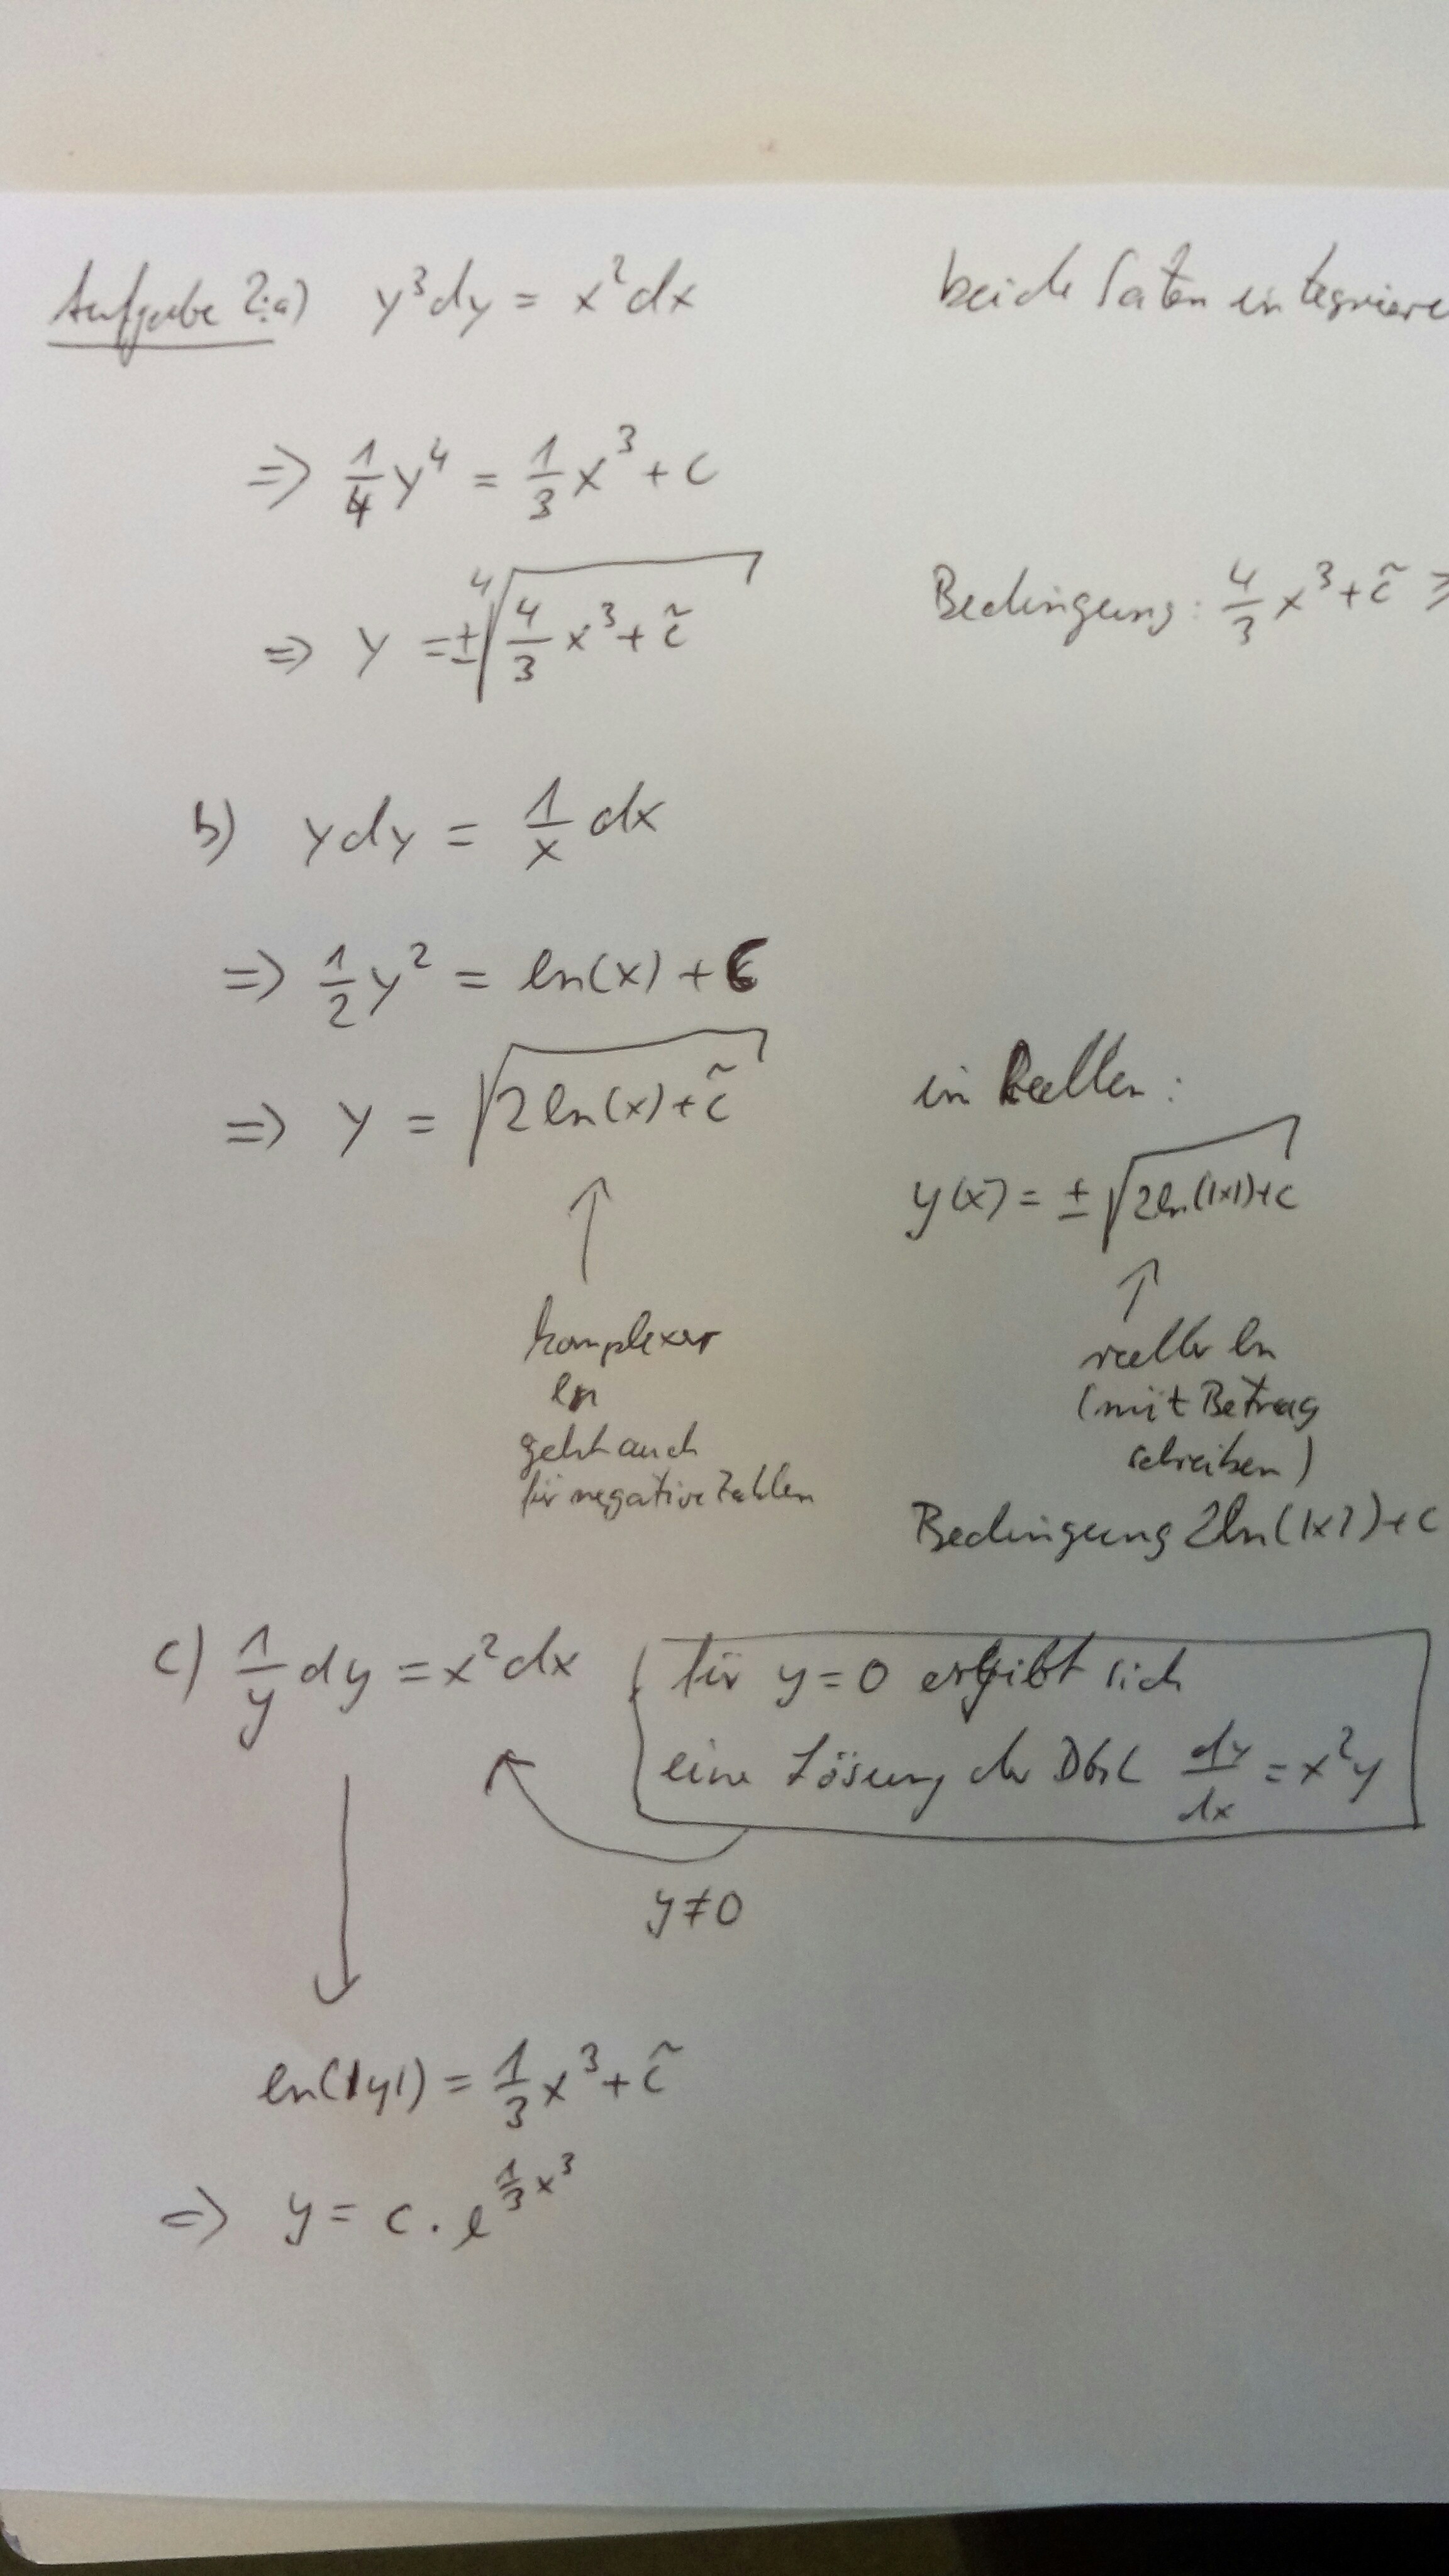 Aufgabe 2: a) y³dy = x²dx beide Seiten integriere
=> 1/4 y⁴ = 1/3 x³ + c
=> y = ± ⁴√(4/3 x³ + c̃) Bedingung: 4/3 x³ + c̃ ≥
b) y dy = 1/x dx
=> 1/2 y² = ln(x) + C
=> y = √(2 ln(x) + c̃)
in Reellen:
y(x) = ± √(2ln(|x|)+c)
↑
komplexer
ln
geht auch
für negative Zahlen
↑
reeller ln
(mit Betrag
schreiben)
Bedingung 2ln(|x|)+c
c) 1/y dy = x²dx
für y=0 ergibt sich
eine Lösung der DGL dy/dx = x²y
y≠0
ln(|y|) = 1/3 x³ + c̃
=> y = c · e^(1/3 x³)